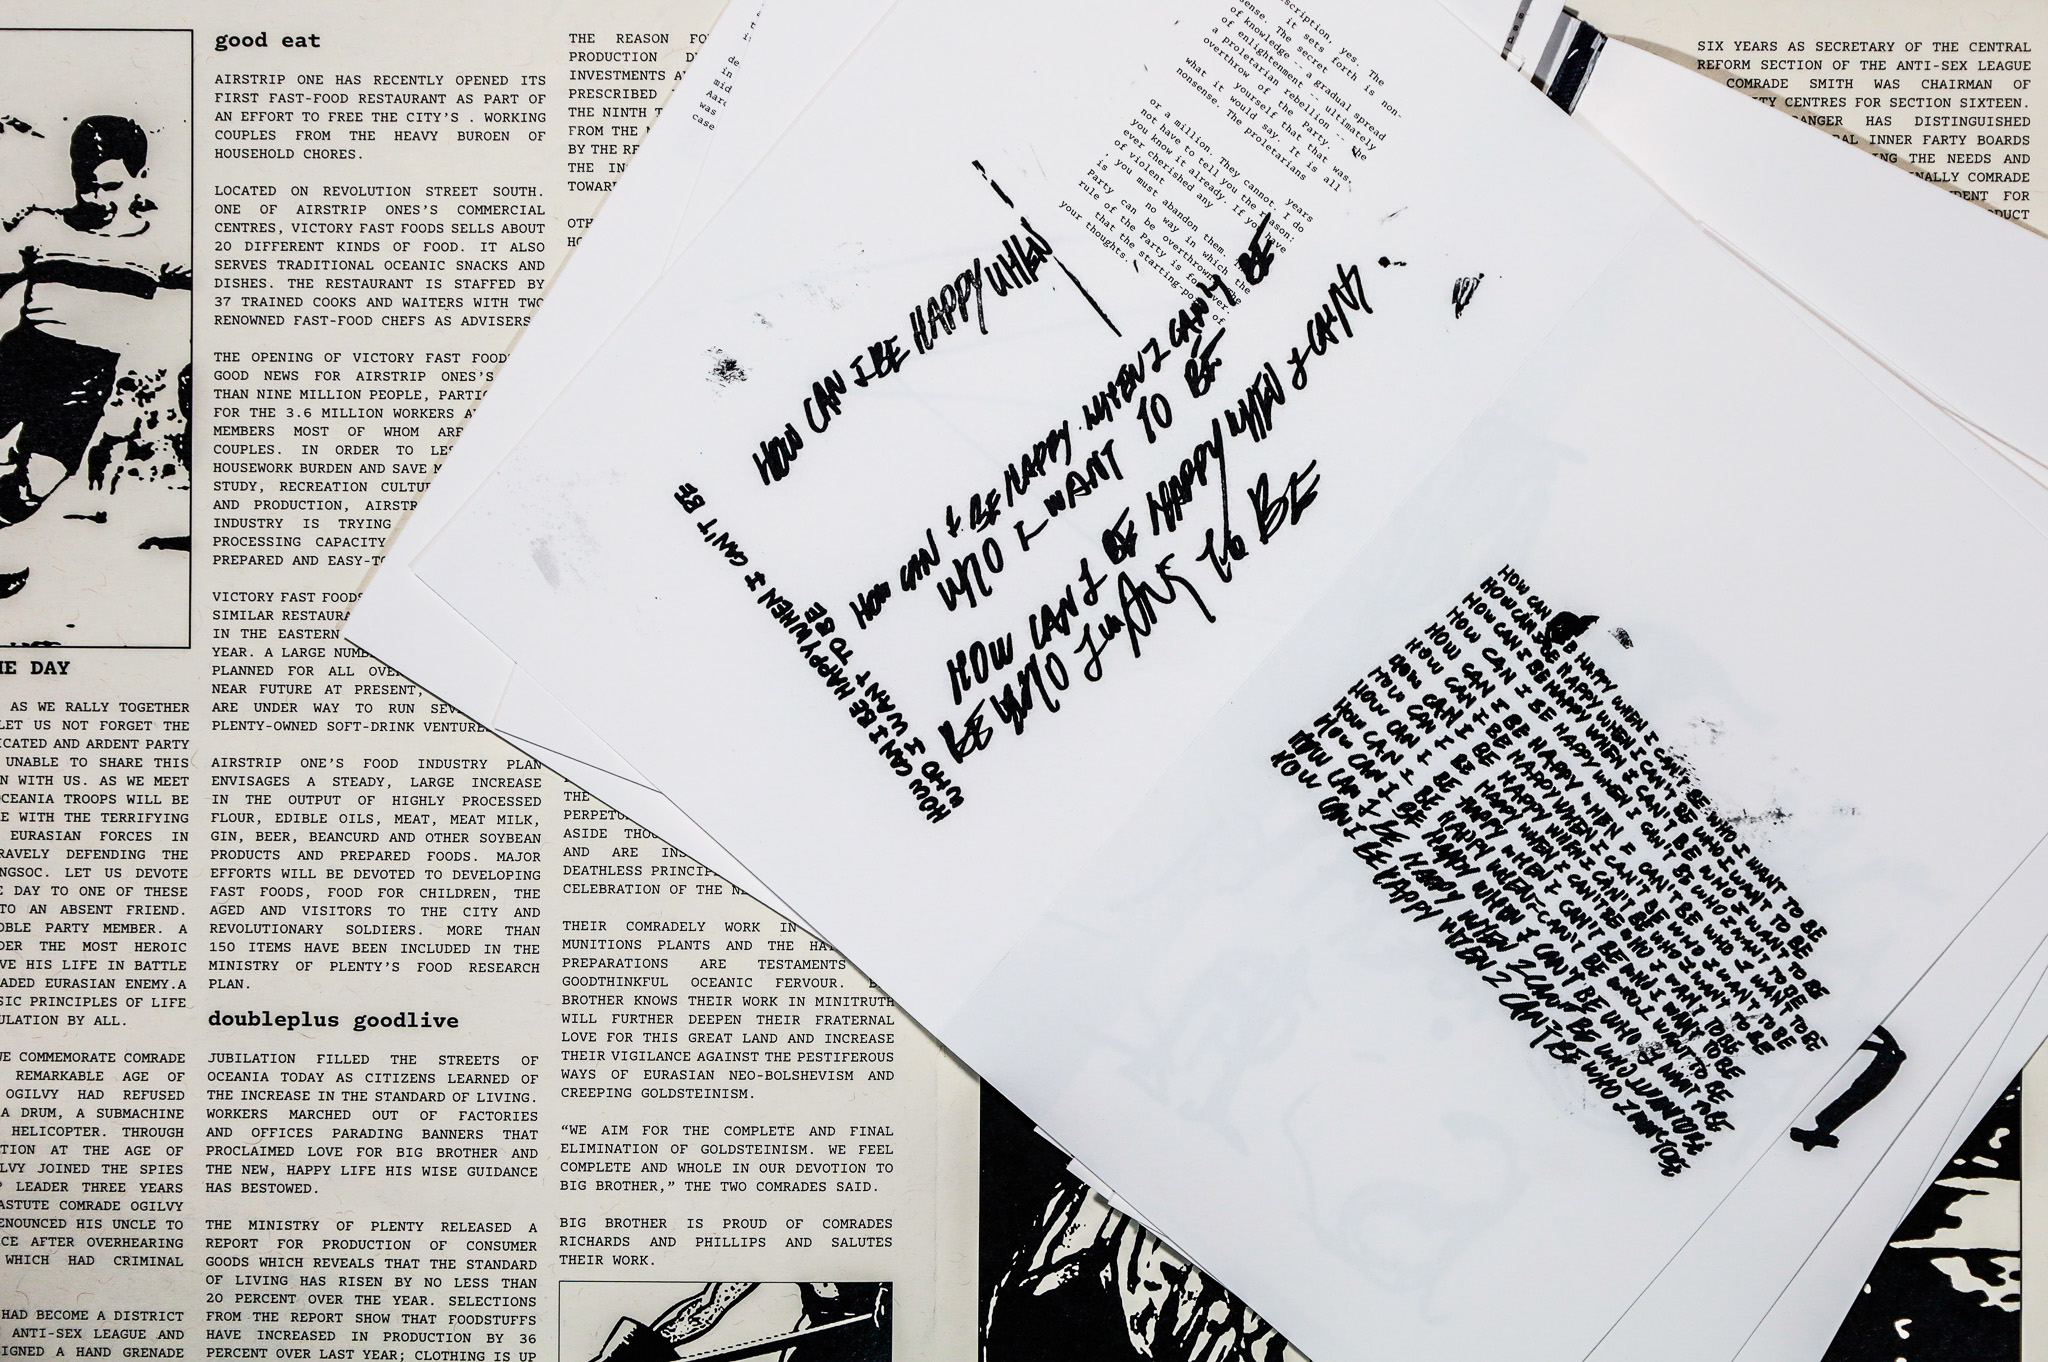 HE DAY
AS WE RALLY TOGETHER
LET US NOT FORGET THE
ICATED AND ARDENT PARTY
UNABLE TO SHARE THIS
N WITH US. AS WE MEET
OCEANIA TROOPS WILL BE
E WITH THE TERRIFYING
EURASIAN FORCES IN
RAVELY DEFENDING THE
NGSOC. LET US DEVOTE
E DAY TO ONE OF THESE
TO AN ABSENT FRIEND.
OBLE PARTY MEMBER. A
DER THE MOST HEROIC
VE HIS LIFE IN BATTLE
ADED EURASIAN ENEMY.A
SIC PRINCIPLES OF LIFE
ULATION BY ALL.
UE COMMEMORATE COMRADE
REMARKABLE AGE OF
OGILVY HAD REFUSED
A DRUM, A SUBMACHINE
HELICOPTER. THROUGH
TION AT THE AGE OF
LVY JOINED THE SPIES
LEADER THREE YEARS
ASTUTE COMRADE OGILVY
ENOUNCED HIS UNCLE TO
CE AFTER OVERHEARING
WHICH HAD CRIMINAL
HAD BECOME A DISTRICT
ANTI-SEX LEAGUE AND
SIGNED A HAND GRENADE
good eat
AIRSTRIP ONE HAS RECENTLY OPENED ITS
FIRST FAST-FOOD RESTAURANT AS PART OF
AN EFFORT TO FREE THE CITY'S . WORKING
COUPLES FROM THE HEAVY BUROEN OF
HOUSEHOLD CHORES.
LOCATED ON REVOLUTION STREET SOUTH.
ONE OF AIRSTRIP ONES'S COMMERCIAL
CENTRES, VICTORY FAST FOODS SELLS ABOUT
20 DIFFERENT KINDS OF FOOD. IT ALSO
SERVES TRADITIONAL OCEANIC SNACKS AND
DISHES. THE RESTAURANT IS STAFFED BY
37 TRAINED COOKS AND WAITERS WITH TWO
RENOWNED FAST-FOOD CHEFS AS ADVISERS
THE OPENING OF VICTORY FAST FOOD
GOOD NEWS FOR AIRSTRIP ONES'S
THAN NINE MILLION PEOPLE, PARTIC
FOR THE 3.6 MILLION WORKERS A
MEMBERS MOST OF WHOM ARE
COUPLES. IN ORDER TO LES
HOUSEWORK BURDEN AND SAVE M
STUDY, RECREATION CULTU
AND PRODUCTION, AIRSTR
INDUSTRY IS TRYING
PROCESSING CAPACITY
PREPARED AND EASY-TO
VICTORY FAST FOODS
SIMILAR RESTAURA
IN THE EASTERN
YEAR. A LARGE NUMB
PLANNED FOR ALL OVE
NEAR FUTURE AT PRESENT,
ARE UNDER WAY TO RUN SEV
PLENTY-OWNED SOFT-DRINK VENTURE
AIRSTRIP ONE'S FOOD INDUSTRY PLAN
ENVISAGES A STEADY, LARGE INCREASE
IN THE OUTPUT OF HIGHLY PROCESSED
FLOUR, EDIBLE OILS, MEAT, MEAT MILK,
GIN, BEER, BEANCURD AND OTHER SOYBEAN
PRODUCTS AND PREPARED FOODS. MAJOR
EFFORTS WILL BE DEVOTED TO DEVELOPING
FAST FOODS, FOOD FOR CHILDREN, THE
AGED AND VISITORS TO THE CITY AND
REVOLUTIONARY SOLDIERS. MORE THAN
150 ITEMS HAVE BEEN INCLUDED IN THE
MINISTRY OF PLENTY'S FOOD RESEARCH
PLAN.
doubleplus goodlive
JUBILATION FILLED THE STREETS OF
OCEANIA TODAY AS CITIZENS LEARNED OF
THE INCREASE IN THE STANDARD OF LIVING.
WORKERS MARCHED OUT OF FACTORIES
AND OFFICES PARADING BANNERS THAT
PROCLAIMED LOVE FOR BIG BROTHER AND
THE NEW, HAPPY LIFE HIS WISE GUIDANCE
HAS BESTOWED.
THE MINISTRY OF PLENTY RELEASED A
REPORT FOR PRODUCTION OF CONSUMER
GOODS WHICH REVEALS THAT THE STANDARD
OF LIVING HAS RISEN BY NO LESS THAN
20 PERCENT OVER THE YEAR. SELECTIONS
FROM THE REPORT SHOW THAT FOODSTUFFS
HAVE INCREASED IN PRODUCTION BY 36
PERCENT OVER LAST YEAR; CLOTHING IS UP
THE REASON FO
PRODUCTION D
INVESTMENTS A
PRESCRIBED
THE NINTH T
FROM THE
BY THE RE
THE IN
TOWAR
OTH
HO
THE
PERPETU
ASIDE THOU
AND ARE INS
DEATHLESS PRINCIP
CELEBRATION OF THE NE
THEIR COMRADELY WORK IN
MUNITIONS PLANTS AND THE HA
PREPARATIONS ARE TESTAMENTS
GOODTHINKFUL OCEANIC FERVOUR. B
BROTHER KNOWS THEIR WORK IN MINITRUTH
WILL FURTHER DEEPEN THEIR FRATERNAL
LOVE FOR THIS GREAT LAND AND INCREASE
THEIR VIGILANCE AGAINST THE PESTIFEROUS
WAYS OF EURASIAN NEO-BOLSHEVISM AND
CREEPING GOLDSTEINISM.
“WE AIM FOR THE COMPLETE AND FINAL
ELIMINATION OF GOLDSTEINISM. WE FEEL
COMPLETE AND WHOLE IN OUR DEVOTION TO
BIG BROTHER,” THE TWO COMRADES SAID.
BIG BROTHER IS PROUD OF COMRADES
RICHARDS AND PHILLIPS AND SALUTES
THEIR WORK.
de
in
mid
Aar
was
case
scription, yes. The
sense. it sets forth is non-
of knowledge -- a gradual spread
of enlightenment -- ultimately
a proletarian rebellion -- the
overthrow of the Party.
yourself that that was
what it would say. It is all
nonsense. The proletarians
years
or a million. They cannot. I do
not have to tell you the reason:
you know it already. If you have
ever cherished any
of violent
you must abandon them. The
is no way in which the
Party can be overthrown. The
rule of the Party is for ever.
that the starting-po of
your thoughts.
HOW CAN I BE HAPPY WHEN
HOW CAN I BE HAPPY WHEN I CAN'T BE
WHO I WANT TO BE
HOW CAN I BE HAPPY WHEN I CAN'T
BE WHO I WANT TO BE
HOW CAN I BE HAPPY WHEN I CAN'T BE
WHO I WANT TO BE
HOW CAN I BE HAPPY WHEN I CAN'T BE WHO I WANT TO BE
HOW CAN I BE HAPPY WHEN I CAN'T BE WHO I WANT TO BE
HOW CAN I BE HAPPY WHEN I CAN'T BE WHO I WANT TO BE
HOW CAN I BE HAPPY WHEN I CAN'T BE WHO I WANT TO BE
HOW CAN I BE HAPPY WHEN I CAN'T BE WHO I WANT TO BE
HOW CAN I BE HAPPY WHEN I CAN'T BE WHO I WANT TO BE
HOW CAN I BE HAPPY WHEN I CAN'T BE WHO I WANT TO BE
HOW CAN I BE HAPPY WHEN I CAN'T BE WHO I WANT TO BE
HOW CAN I BE HAPPY WHEN I CAN'T BE WHO I WANT TO BE
HOW CAN I BE HAPPY WHEN I CAN'T BE WHO I WANT TO BE
HOW CAN I BE HAPPY WHEN I CAN'T BE WHO I WANT TO BE
HOW CAN I BE HAPPY WHEN I CAN'T BE WHO I WANT TO BE
SIX YEARS AS SECRETARY OF THE CENTRAL
REFORM SECTION OF THE ANTI-SEX LEAGUE
COMRADE SMITH WAS CHAIRMAN OF
TY CENTRES FOR SECTION SIXTEEN.
RANGER HAS DISTINGUISHED
RAL INNER FARTY BOARDS
ING THE NEEDS AND
INALLY COMRADE
DENT FOR
DUCT